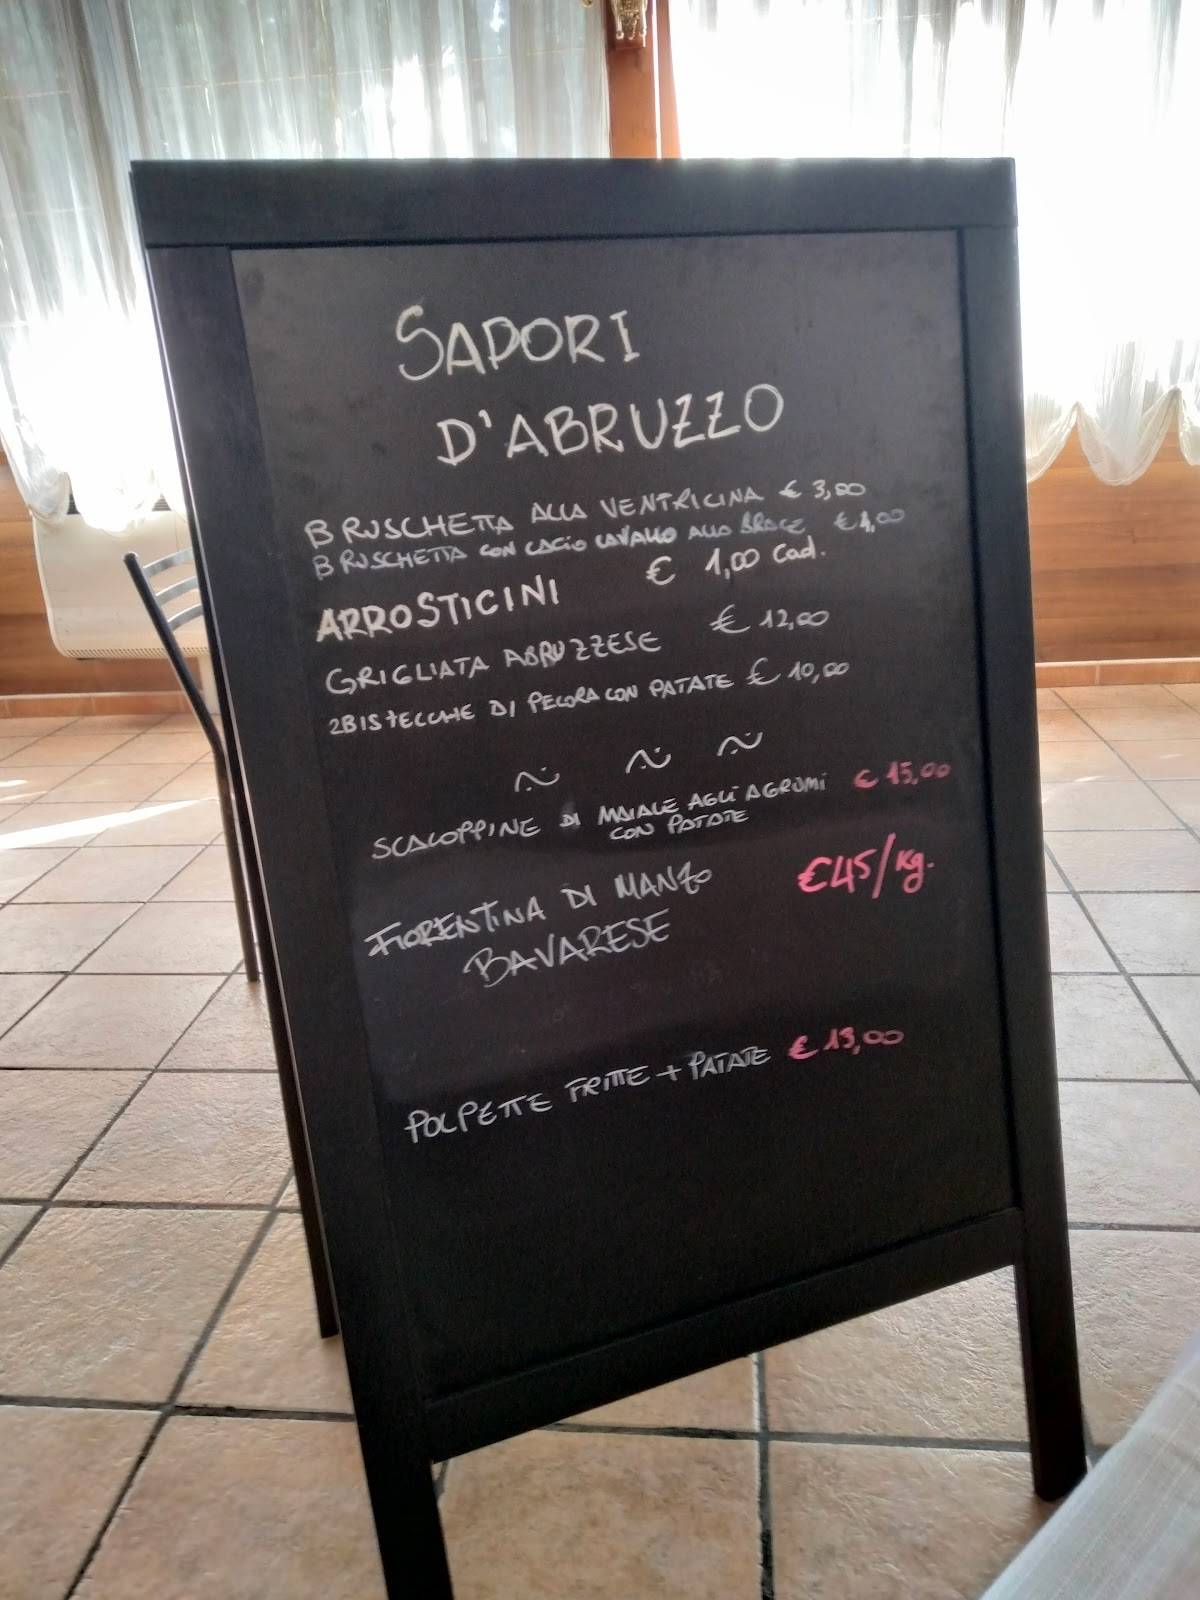 SAPORI
D'ABRUZZO
BRUSCHETTA ALLA VENTRICINA € 3,00
BRUSCHETTA CON CACIO CAVALLO ALLA BRACE € 4,00
ARROSTICINI € 1,00 Cad.
GRIGLIATA ABRUZZESE € 12,00
2 BISTECCHE DI PECORA CON PATATE € 10,00
SCALOPPINE DI MAIALE AGLI AGRUMI € 15,00
CON PATATE
FIORENTINA DI MANZO €45/Kg.
BAVARESE
POLPETTE FRITTE + PATATE € 13,00